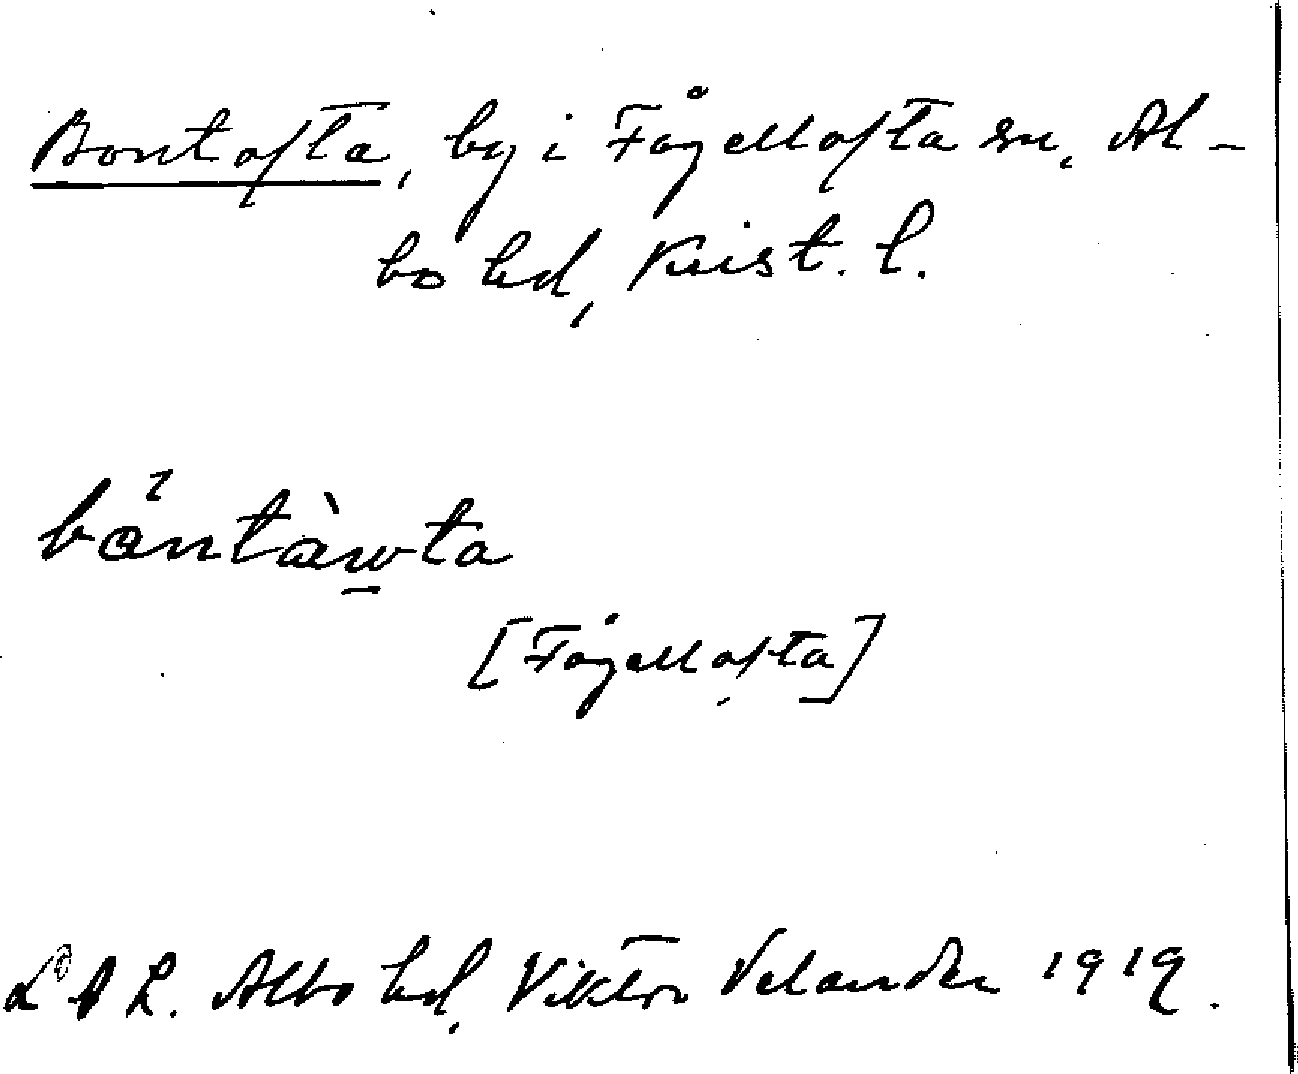 Bontofta, by i Fågeltofta sn, Al-
bo hd, Krist. l.
båntàwta
[Fågeltofta]
L A L. Albo hd, Viktor Velander 1919.